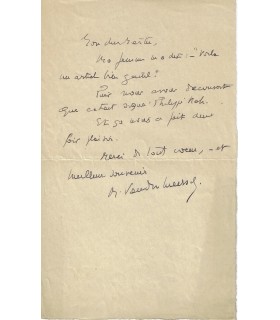 Mon cher Maître,
Ma femme m'a dit : "Voilà
un article bien gentil !"
Puis nous avons découvert
que c'était signé : Philippe
Et ça nous a fait deux
fois plaisir.
Merci de tout cœur, et
meilleur souvenir
M. Van der Meersch.